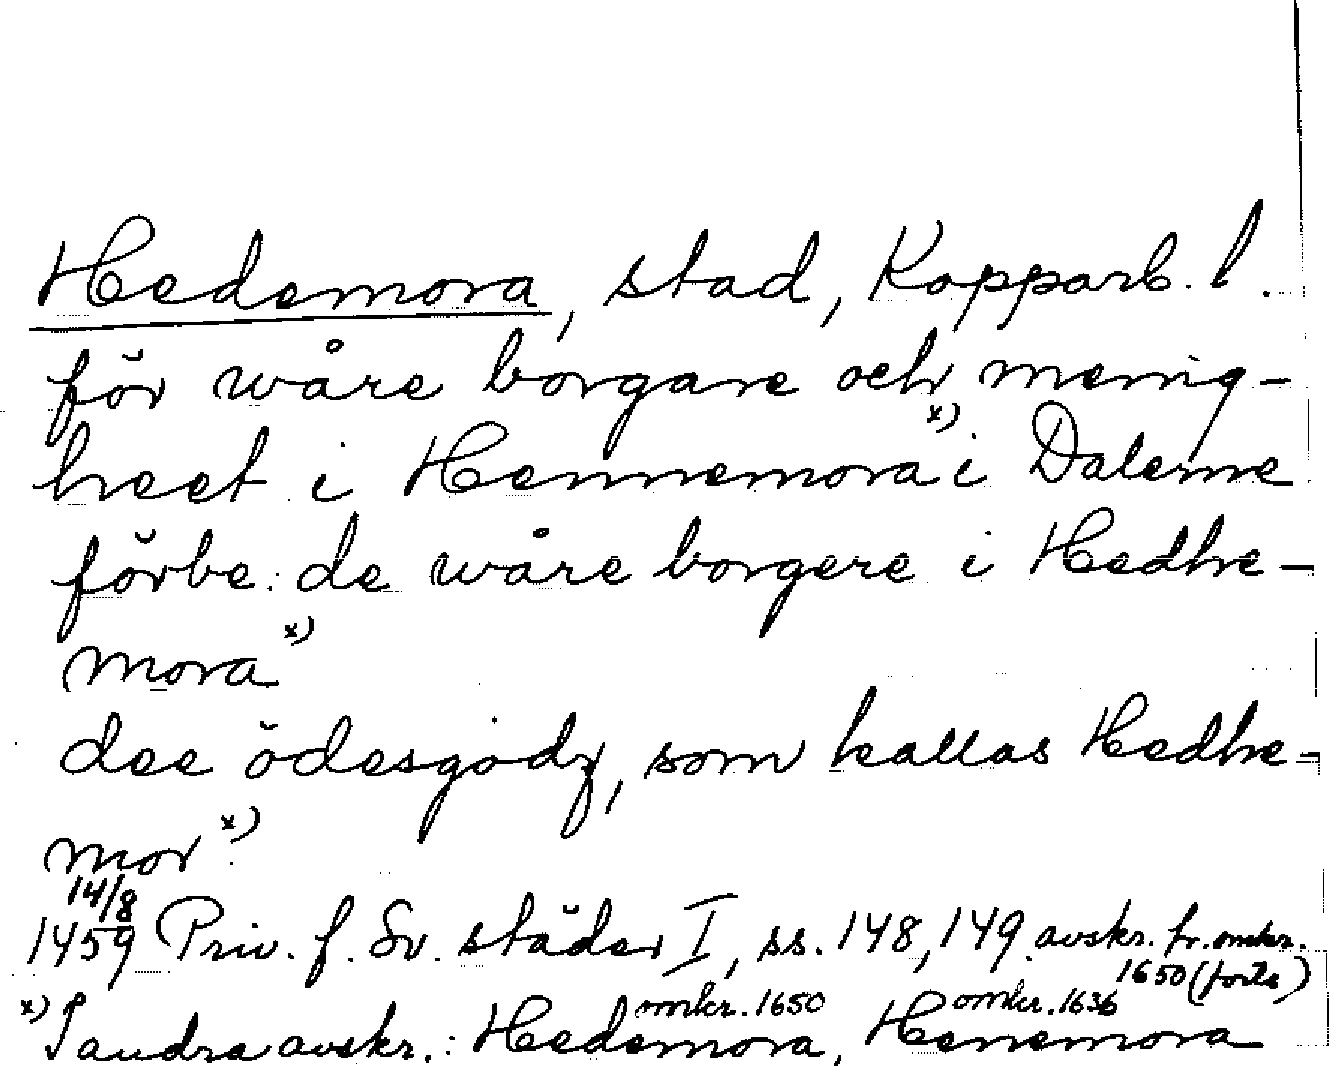 Hedemora, stad, Kopparb. l.
för wåre borgare och menig-
heet i Hennemora x) i Dalerne
förbe: de wåre borgere i Hedhe-
mora x)
dee ödesgodz, som kallas Hedhe-
mor x).
14/8
1459 Priv. f. Sv. städer I, ss. 148, 149. avskr. fr. omkr.
1650 (forts)
omkr. 1650 omkr. 1636
x) I andra avskr.: Hedemora, Henemora